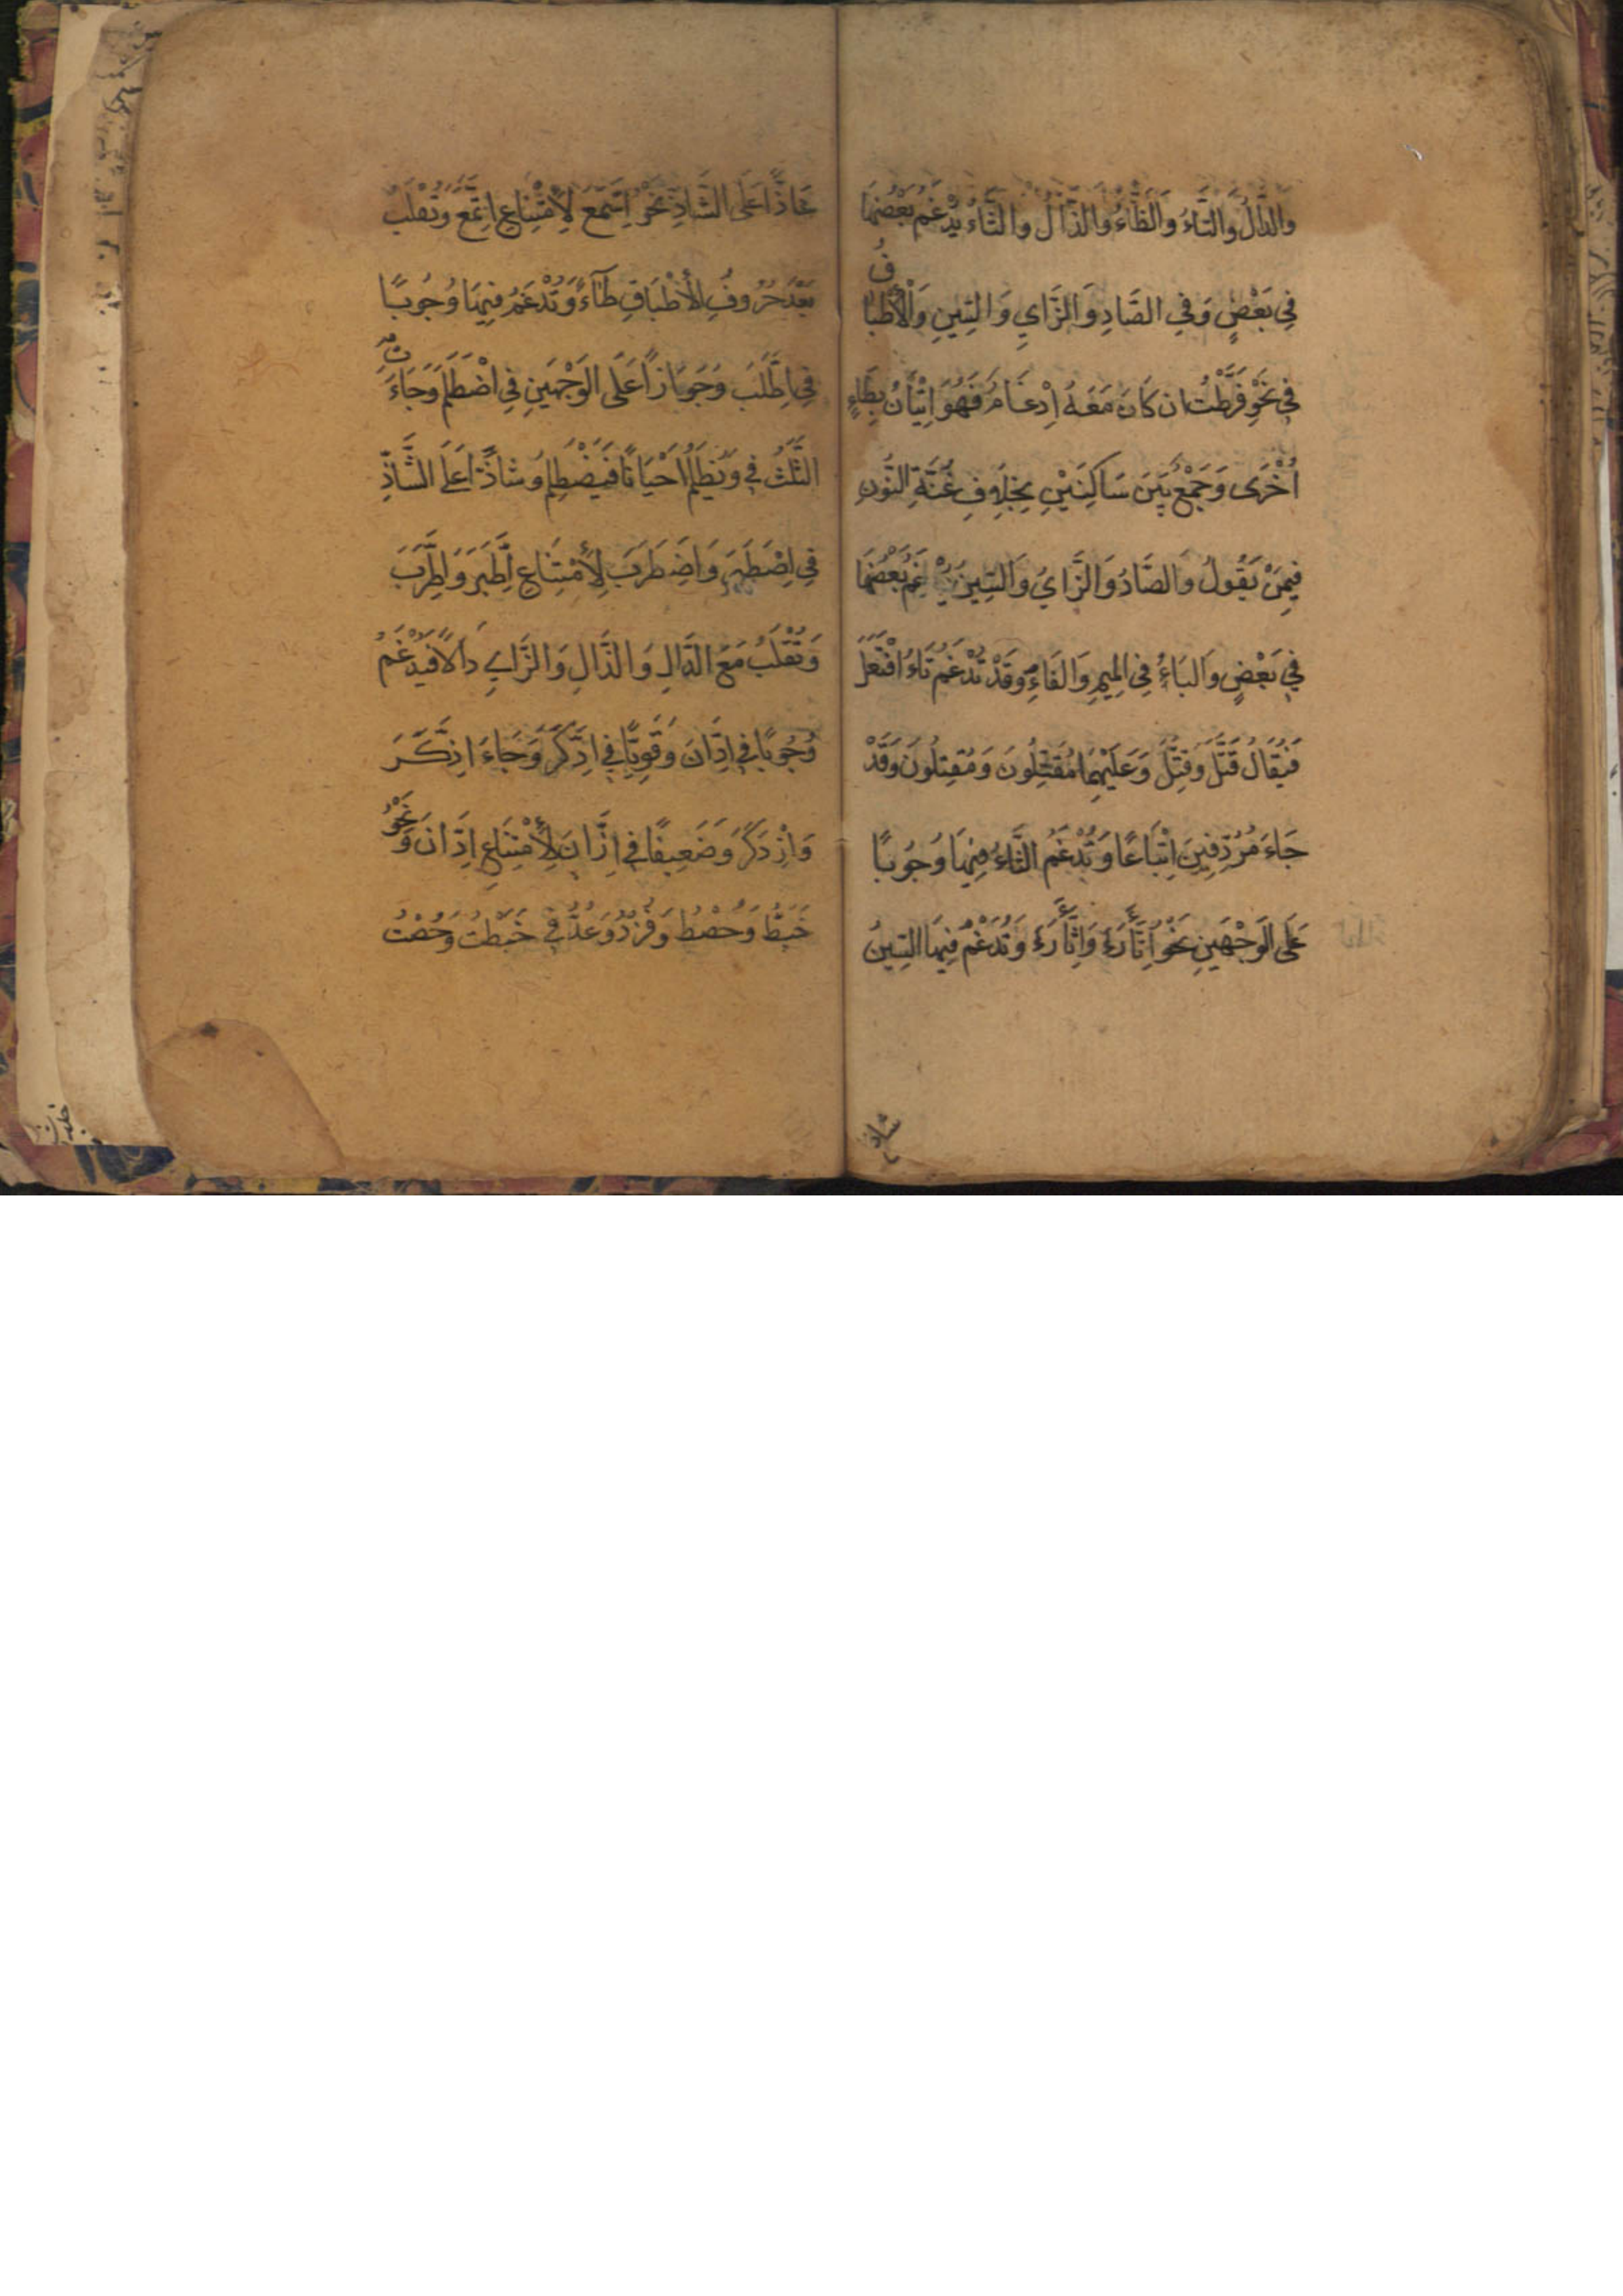 وَالدَّالُ وَالتَّاءُ وَالظَّاءُ وَالذَّالُ وَالثَّاءُ يُدْغَمُ بَعْضُهَا
فِي بَعْضٍ وَفِي الصَّادِ وَالزَّايِ وَالسِّينِ وَالْأِطْبَاقُ
فِي نَحْوِ فَرَّطْتُ ان كَانَ مَعَهُ اِدْغَامٌ فَهُوَ اِتْيَانٌ بِطَاءٍ
اُخْرَى وَجَمْعٌ بَيْنَ سَاكِنَيْنِ بِخِلَافِ غُنَّةِ النُّونِ
فِيمَنْ يَقُولُ وَالصَّادُ وَالزَّايُ وَالسِّينُ يُدْغَمُ بَعْضُهَا
فِي بَعْضٍ وَالبَاءُ فِي المِيمِ وَالفَاءِ وَقَدْ تُدْغَمُ تَاءُ افْتَعَلَ
فَيُقَالُ قَتَّلَ وَقِتَّلَ وَعَلَيْهِمَا مُقَتِّلُونَ وَمُقِتِّلُونَ وَقَدْ
جَاءَ مُرُدِّفِينَ اِتْبَاعًا وَتُدْغَمُ الثَّاءُ فِيهَا وُجُوبًا
عَلَى الوَجْهَينِ نَحْوُ اِتَّأَرَ وَاِثَّأَرَ وَتُدْغَمُ فِيهَا السِّينُ
شاذّا
شَاذًّا عَلَى الشَّاذِّ نَحْوُ اِسَّمَعَ لِأِمْتِنَاعِ اِتَّمَعَ وَتُقْلَبُ
بَعْدَ حُرُوفِ الأِطْبَاقِ طَاءً وَتُدْغَمُ فِيهَا وُجُوبًا
فِي اِطَّلَبَ وَجَوَازًا عَلَى الوَجْهَينِ فِي اضْطَلَمَ وَجَاءَتِ
الثَّلَثُ فِي وَيُظْلَمُ اَحْيَانًا فَيَضْطَلِمُ وَشاذًّا عَلَى الشَّاذِّ
فِي اِصْطَبَرَ وَاضْطَرَبَ لِأِمْتِنَاعِ اِطَّبَرَ وَاطَّرَبَ
وَتُقْلَبُ مَعَ الدَّالِ وَالذَّالِ وَالزَّايِ دَالاً فَيُدْغَمُ
وُجُوبًا فِي اِدَّانَ وَقَوِيًّا فِي اِدَّكَرَ وَجَاءَ اذَّكَرَ
وَاذْدَكَرَ وَضَعِيفًا فِي اِزَّانَ لِأِمْتِنَاعِ اِدَّانَ وَنَحْوُ
خَبَطُّ وَحُصْطُ وَفُزْدُ وَعُدُّ فِي خَبَطْتُ وَحُصْتُ